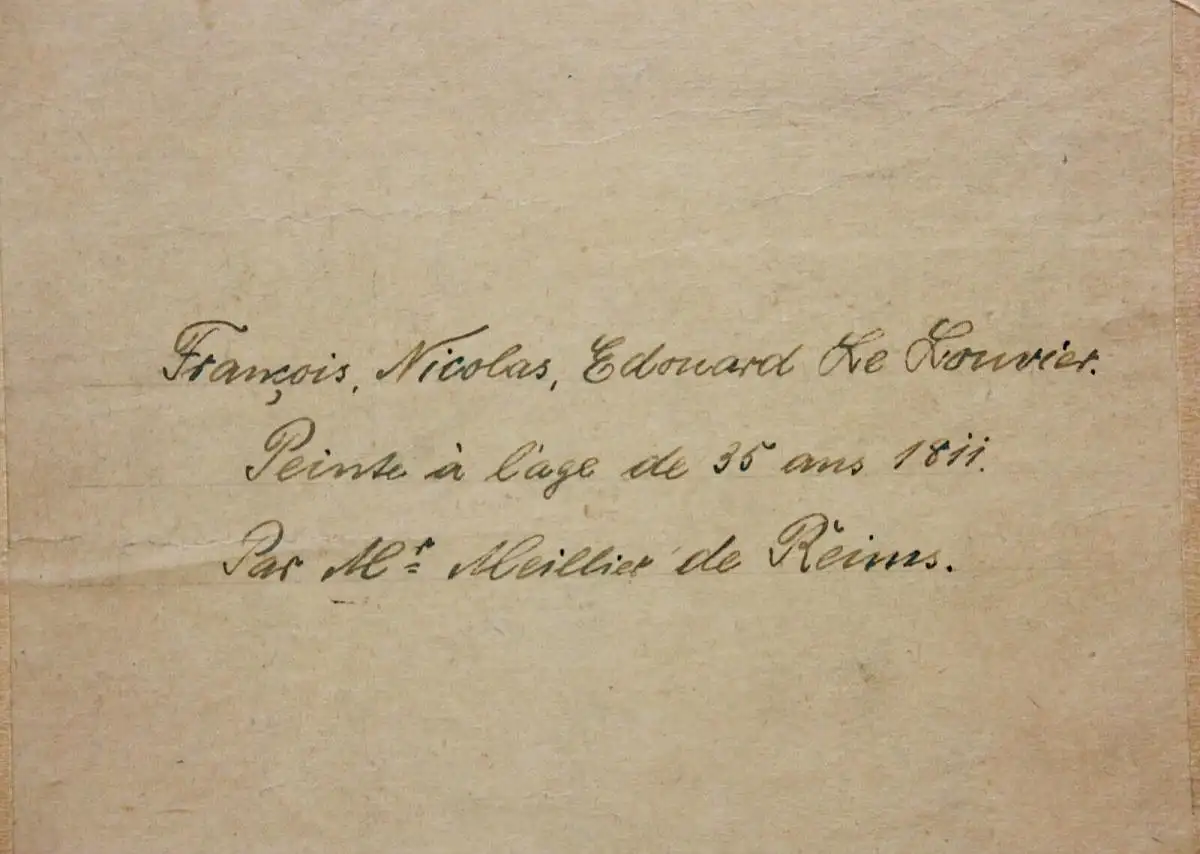 François, Nicolas, Edouard Le Louvier.
Peinte à l'age de 35 ans 1811.
Par Mr Meillier de Reims.